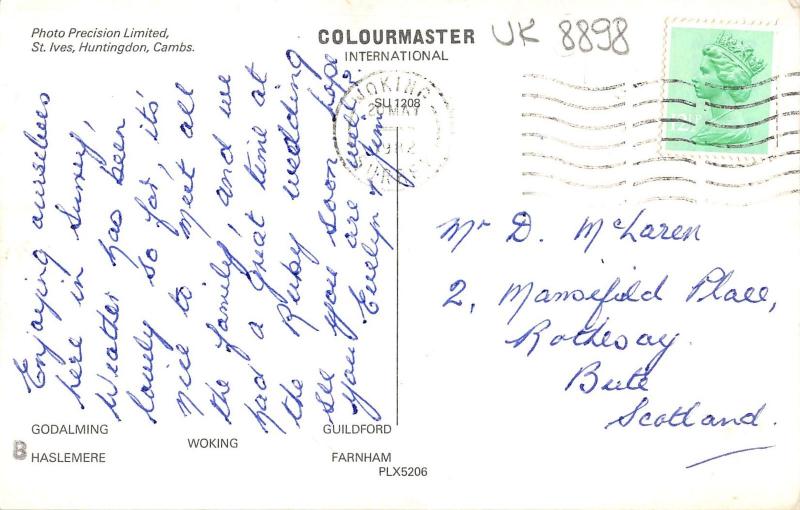 Photo Precision Limited,
St. Ives, Huntingdon, Cambs.
COLOURMASTER
INTERNATIONAL
UK 8898
SU 1208
WOKING
MAY
12½
Enjoying ourselves
here in Surrey,
Weather has been
lovely so far, its'
nice to meet all
the family, and we
had a great time at
the Ruby wedding
see you soon hope
you are well,
Evelyn & Jim
Mr D. McLaren
2, Mansefield Place,
Rothesay.
Bute
Scotland.
GODALMING
WOKING
GUILDFORD
B
HASLEMERE
FARNHAM
PLX5206